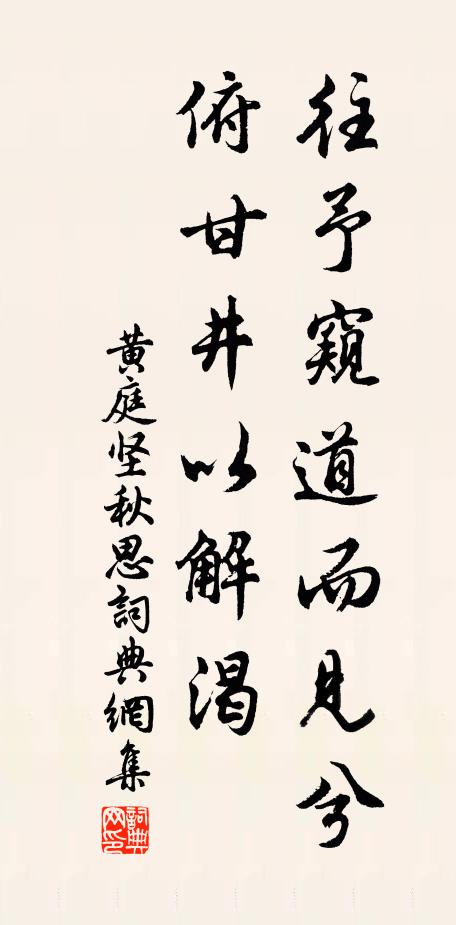 往予窺道而見兮
俯甘井以解渴
黄庭坚秋思詞典網集
詞典网印